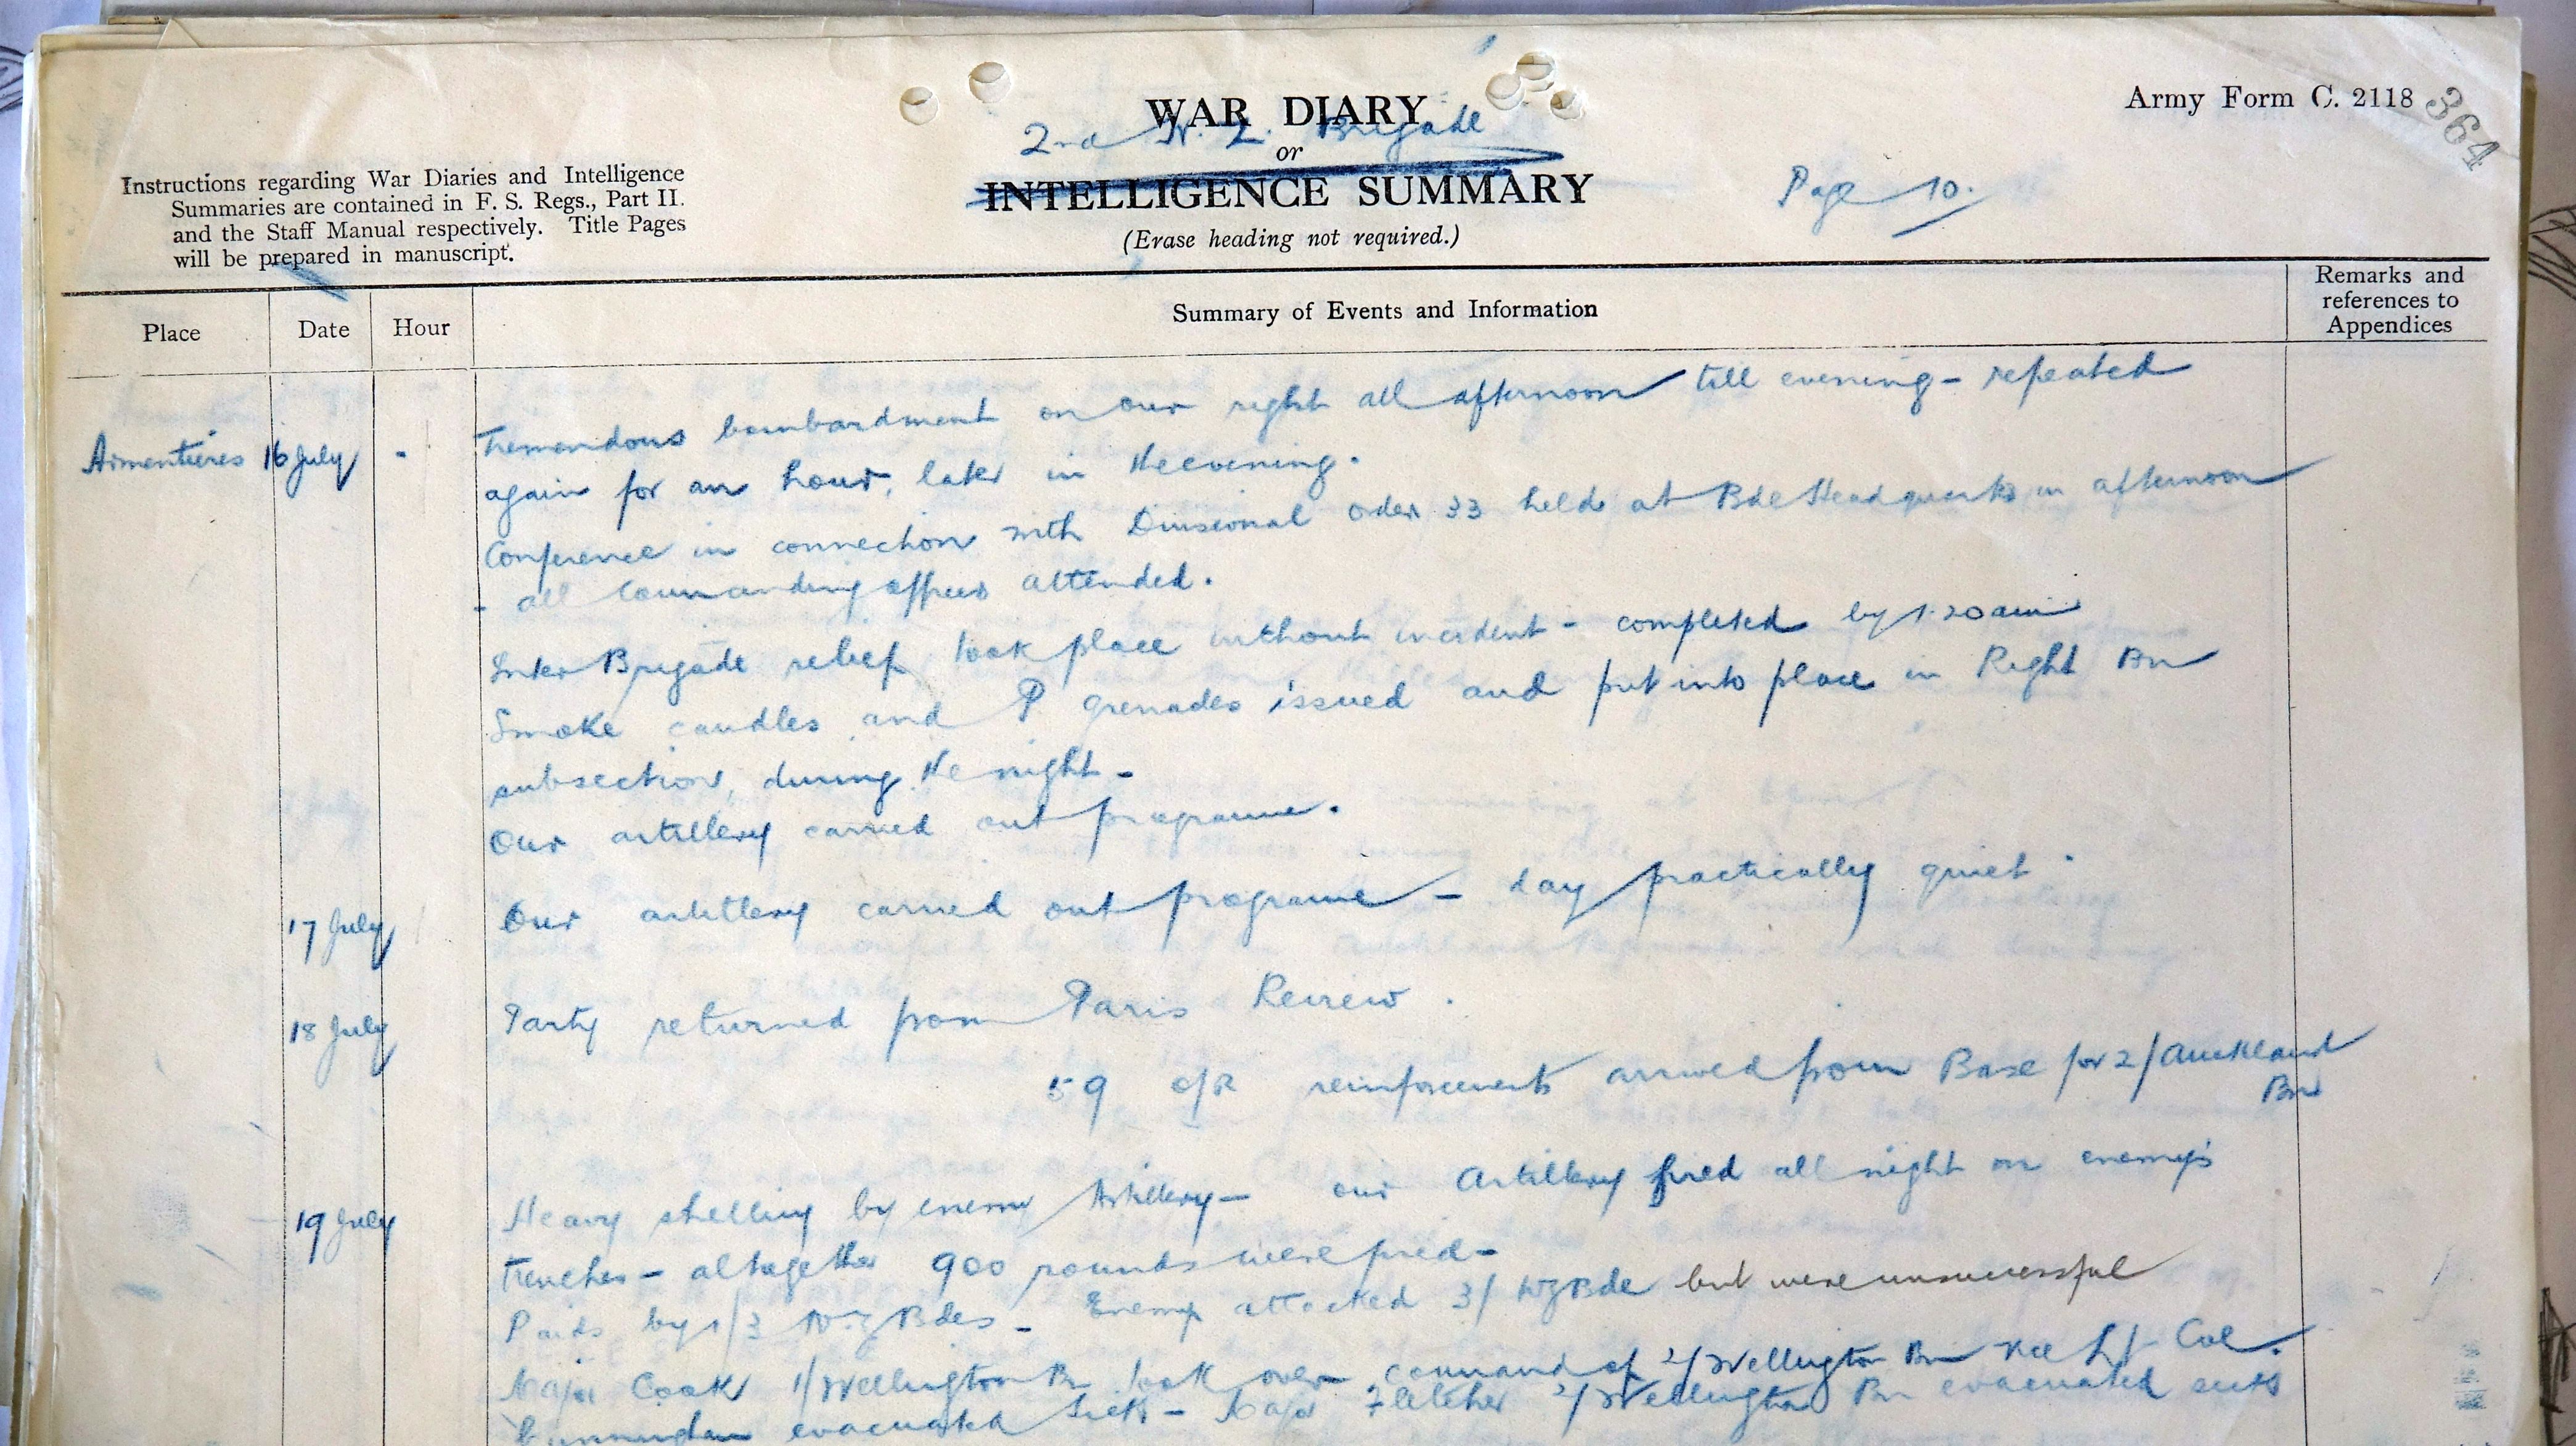 WAR DIARY
2nd N. Z. Brigade
or
INTELLIGENCE SUMMARY
(Erase heading not required.)
Army Form C. 2118
364
Page 10.
Instructions regarding War Diaries and Intelligence
Summaries are contained in F. S. Regs., Part II.
and the Staff Manual respectively. Title Pages
will be prepared in manuscript.
Place Date Hour Summary of Events and Information Remarks and
references to
Appendices
Armentieres 16 July - Tremendous bombardment on our right all afternoon till evening - repeated
again for an hour, later in the evening.
Conference in connection with Divisional Order 33 held at Bde Headquarters in afternoon
- all Commanding officers attended.
Inter Brigade relief took place without incident - completed by 1.20 am
Smoke candles and P grenades issued and put into place in Right Bn
subsection, during the night -
Our artillery carried out programme.
17 July Our artillery carried out programme - day practically quiet.
18 July Party returned from Paris Review.
59 O/R reinforcements arrived from Base for 2/Auckland
Bn
19 July Heavy shelling by enemy Artillery - our Artillery fired all night on enemy's
trenches - altogether 900 rounds were fired -
Raids by 1/3 N.Z Bdes - Enemy attacked 3/ NZ Bde but were unsuccessful
Major Cook 1/Wellington Bn took over command of 2/Wellington Bn vice Lt Col.
Cunningham evacuated sick - Major Fletcher 2/Wellington Bn evacuated sick